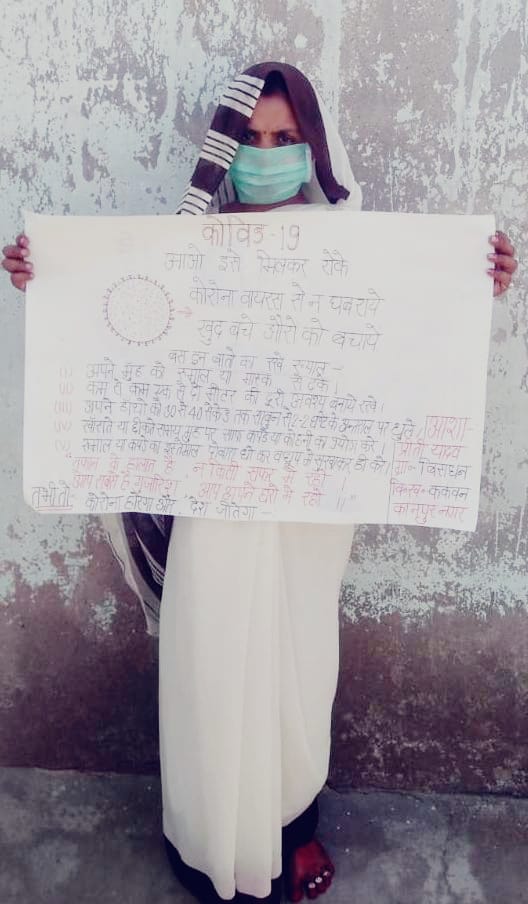 कोविड-19
आओ इसे मिलकर रोके
कोरोना वायरस से न घबराये
खुद बचे औरो को बचाये
बस इन बातो का रखे ख्याल -
(I) अपने मुह को रुमाल या मास्क से ढके।
(II) कम से कम एक से दो मीटर की दूरी अवश्य बनाये रखे।
(III) अपने हाथो को 30 से 40 सेकेंड तक साबुन से 2-2 घंटे के अन्तराल पर धुले।
(IV) खाँसते या छीकते समय मुह पर साफ कपडे या कोहनी का उपयोग करे।
(V) रुमाल या कपडे का इस्तेमाल दोबारा धो कर व धूप में सुखाकर ही करे।
तूफान के हालात है न किसी सफर में रहो
आप सबसे है गुजारिश आप अपने घरो में रहो
तभी तो कोरोना हारेगा और देश जीतेगा -
आशा-
प्रीति यादव
ग्रा०-
वि०ख०- ककवन
कानपुर नगर